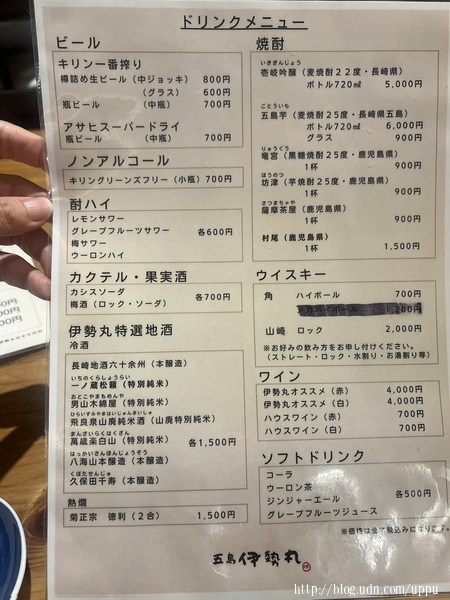 ドリンクメニュー
ビール
キリン一番搾り
樽詰め生ビール（中ジョッキ） 800円
（グラス） 600円
瓶ビール （中瓶） 700円
アサヒスーパードライ
瓶ビール （中瓶） 700円
ノンアルコール
キリングリーンズフリー（小瓶）700円
酎ハイ
レモンサワー
グレープフルーツサワー
梅サワー
ウーロンハイ
各600円
カクテル・果実酒
カシスソーダ
梅酒（ロック・ソーダ）
各700円
伊勢丸特選地酒
冷酒
長崎地酒六十余州（本醸造）
いちのくらしょうらい
一ノ蔵松籟（特別純米）
おとこやまもめんや
男山木綿屋（特別純米）
ひらいずみやまはいじゅんまいしゅ
飛良泉山廃純米酒（山廃特別純米）
まんざいらくはくさん
萬歳楽白山（特別純米）
各1,500円
はっかいさんほんじょうぞう
八海山本醸造（本醸造）
くぼたせんじゅ
久保田千寿（本醸造）
熱燗
菊正宗 徳利（２合） 1,500円
焼酎
いきぎんじょう
壱岐吟醸（麦焼酎２２度・長崎県）
ボトル720㎖ 5,000円
ごとういも
五島芋（麦焼酎25度・長崎県五島）
ボトル720㎖ 6,000円
グラス 900円
りゅうぐう
竜宮（黒糖焼酎25度・鹿児島県）
1杯 900円
ぼうのつ
坊津（芋焼酎25度・鹿児島県）
1杯 900円
さつまちゃや
薩摩茶屋（鹿児島県）
1杯 900円
村尾（鹿児島県）
1杯 1,500円
ウイスキー
角 ハイボール 700円
1,200円
山崎 ロック 2,000円
※お好みの飲み方をお申し付けください。
（ストレート・ロック・水割り・お湯割り等）
ワイン
伊勢丸オススメ（赤） 4,000円
伊勢丸オススメ（白） 4,000円
ハウスワイン（赤） 700円
ハウスワイン（白） 700円
ソフトドリンク
コーラ
ウーロン茶
ジンジャーエール
グレープフルーツジュース
各500円
※価格は全て税込みになります。
五島 伊勢丸
http://blog.udn.com/uppu